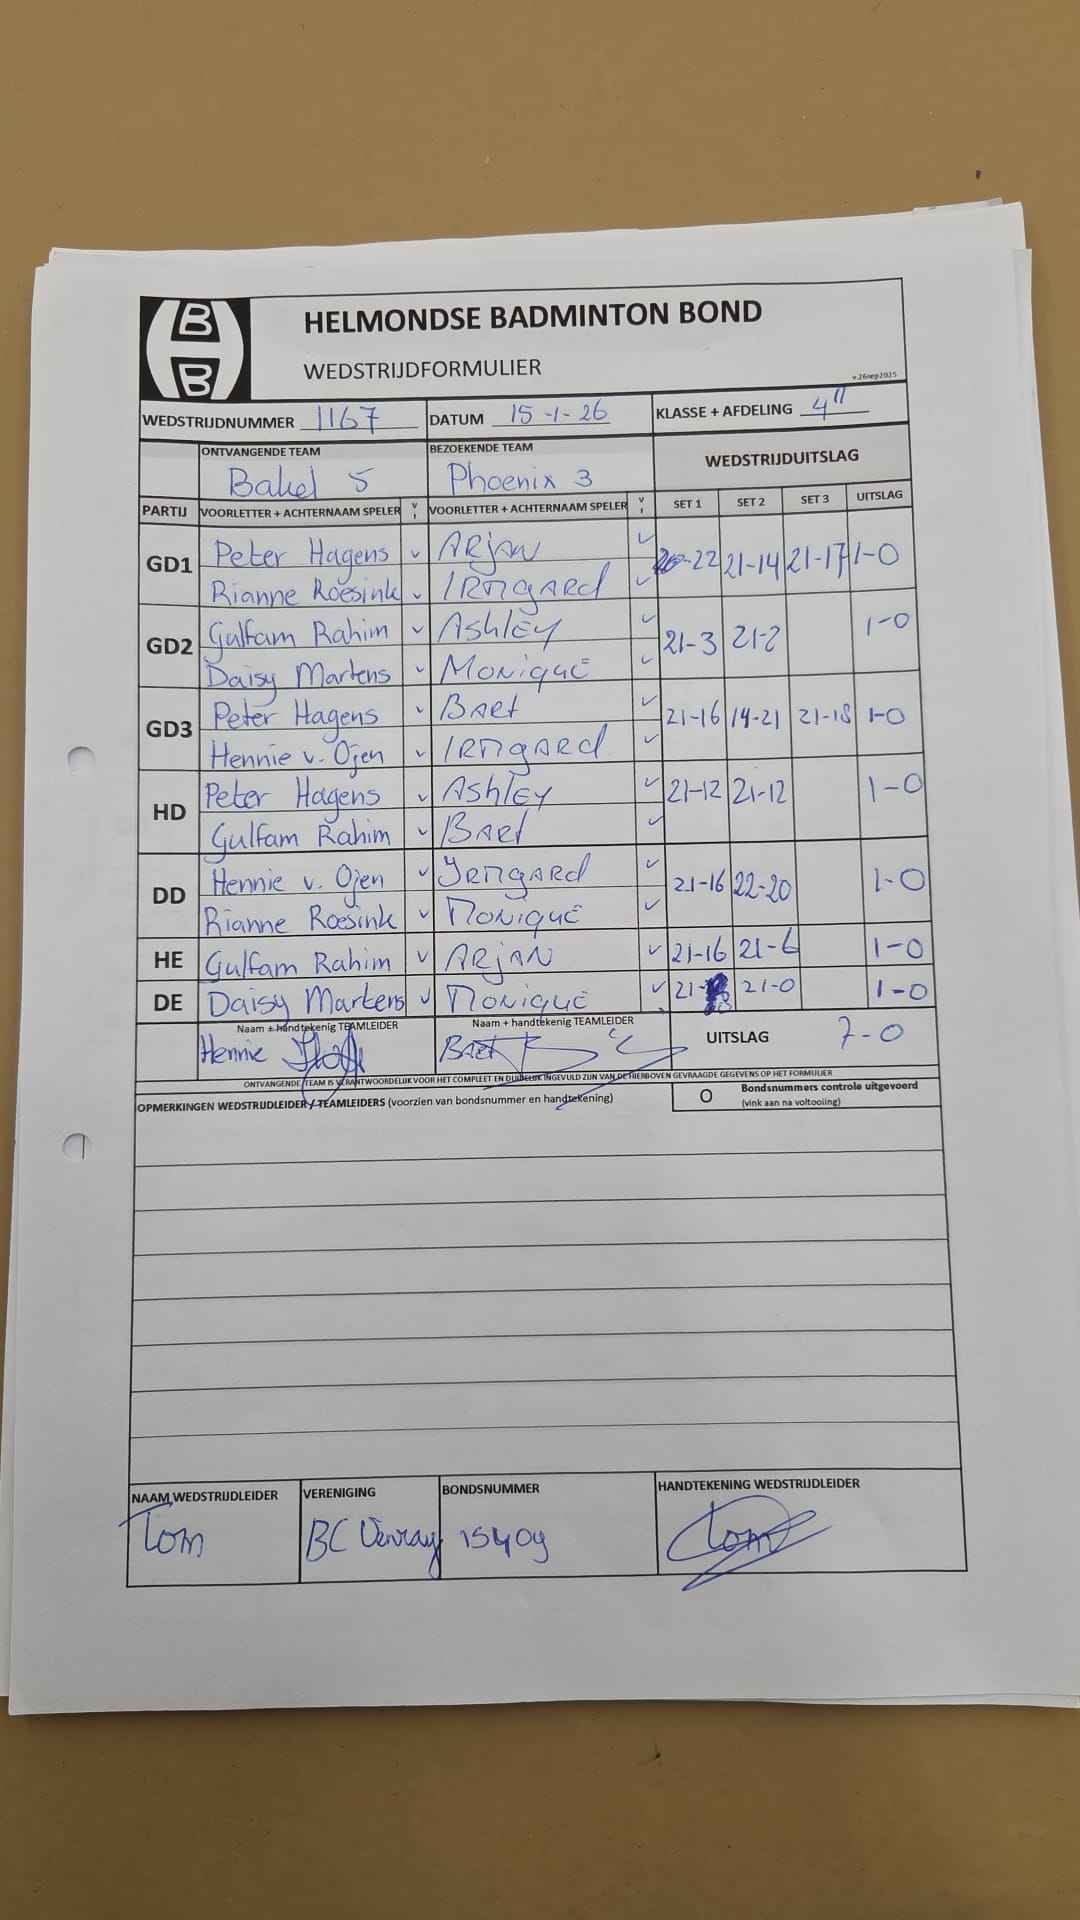 B
B
HELMONDSE BADMINTON BOND
WEDSTRIJDFORMULIER
v.26sep2025
WEDSTRIJDNUMMER 1167 DATUM 15-1-26 KLASSE + AFDELING 4"
ONTVANGENDE TEAM BEZOEKENDE TEAM WEDSTRIJDUITSLAG
Bakel 5 Phoenix 3
PARTIJ VOORLETTER + ACHTERNAAM SPELER V VOORLETTER + ACHTERNAAM SPELER V SET 1 SET 2 SET 3 UITSLAG
GD1 Peter Hagens ✓ ARjAN ✓ 20-22 21-14 21-17 1-0
Rianne Roesink ✓ IRMgARd ✓
GD2 Gulfam Rahim ✓ AshlEy ✓ 21-3 21-2 1-0
Daisy Martens ✓ MoniquE ✓
GD3 Peter Hagens ✓ BARt ✓ 21-16 14-21 21-18 1-0
Hennie v. Ojen ✓ IRMgARd ✓
HD Peter Hagens ✓ AshlEy ✓ 21-12 21-12 1-0
Gulfam Rahim ✓ BARt ✓
DD Hennie v. Ojen ✓ IRMgARd ✓ 21-16 22-20 1-0
Rianne Roesink ✓ MoniquE ✓
HE Gulfam Rahim ✓ ARjAN ✓ 21-16 21-6 1-0
DE Daisy Martens ✓ MoniquE ✓ 21- 21-0 1-0
Naam + handtekenig TEAMLEIDER Naam + handtekenig TEAMLEIDER UITSLAG 7-0
Hennie BARt
ONTVANGENDE TEAM IS VERANTWOORDELIJK VOOR HET COMPLEET EN DUIDELIJK INGEVULD ZIJN VAN DE HIERBOVEN GEVRAAGDE GEGEVENS OP HET FORMULIER
OPMERKINGEN WEDSTRIJDLEIDER / TEAMLEIDERS (voorzien van bondsnummer en handtekening) O Bondsnummers controle uitgevoerd
(vink aan na voltooiing)
NAAM WEDSTRIJDLEIDER VERENIGING BONDSNUMMER HANDTEKENING WEDSTRIJDLEIDER
Tom BC Venray 15409 Tom